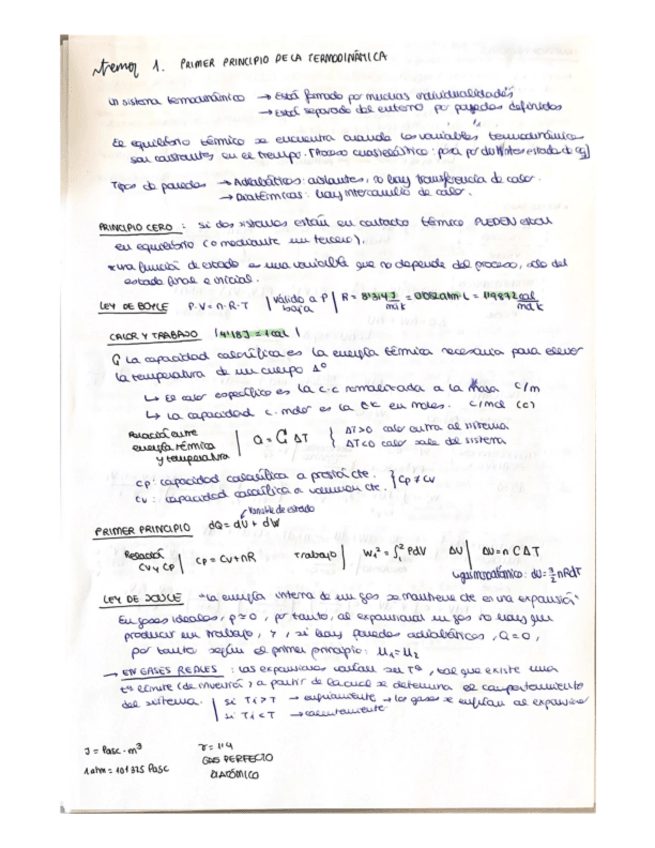 tema 1. PRIMER PRINCIPIO DE LA TERMODINÁMICA
Un sistema termodinámico → Está formado por muchas individualidades
→ Está separado del entorno por paredes definidas
El equilibrio térmico se encuentra cuando las variables termodinámicas
son constantes en el tiempo. [Proceso cuasiestático: pasa por distintos estados de eq]
Tipos de paredes → Adiabáticas: aislantes, no hay transferencia de calor.
→ Diatérmicas: hay intercambio de calor.
PRINCIPIO CERO: si dos sistemas están en contacto térmico PUEDEN estar
en equilibrio (o mediante un tercero).
*una función de estado es una variable que no depende del proceso, sólo del
estado final e inicial.
LEY DE BOYLE P·V = n·R·T | válido a P baja | R = 8'314 J/mol K = 0'082 atm·L = 1'9872 cal/mol K
CALOR Y TRABAJO | 4'18 J = 1 cal |
C La capacidad calorífica es la energía térmica necesaria para elevar
la temperatura de un cuerpo 1º
↳ El calor específico es la c.c normalizada a la masa c/m
↳ La capacidad c. molar es la en moles. c/mol (c)
Relación entre energía térmica y temperatura | Q = C ΔT { ΔT>0 calor entra al sistema
ΔT<0 calor sale del sistema
Cp: capacidad calorífica a presión cte. } Cp ≠ Cv
Cv: capacidad calorífica a volumen cte.
Variable de estado
PRIMER PRINCIPIO dQ = dU + dW
Relación Cv y Cp | Cp = Cv + nR trabajo | W₁² = ∫₁² PdV ΔU | ΔU = n C ΔT
gas monoatómico: dU = 3/2 nRdT
LEY DE JOULE "La energía interna de un gas se mantiene cte en una expansión"
En gases ideales, p≈0, por tanto, al expansionar un gas no hay que
producir un trabajo, y, si hay paredes adiabáticas, Q=0,
por tanto según el primer principio: U₁ = U₂
→ EN GASES REALES: las expansiones varían su Tª, tal que existe una
tª límite (de inversión) a partir de la cual se determina el comportamiento
del sistema. | si Ti > T → enfriamiento → los gases se enfrían al expansionar
si Ti < T → calentamiento
J = Pasc·m³
1 atm = 101325 Pasc
γ = 1'4
GAS PERFECTO
DIATÓMICO